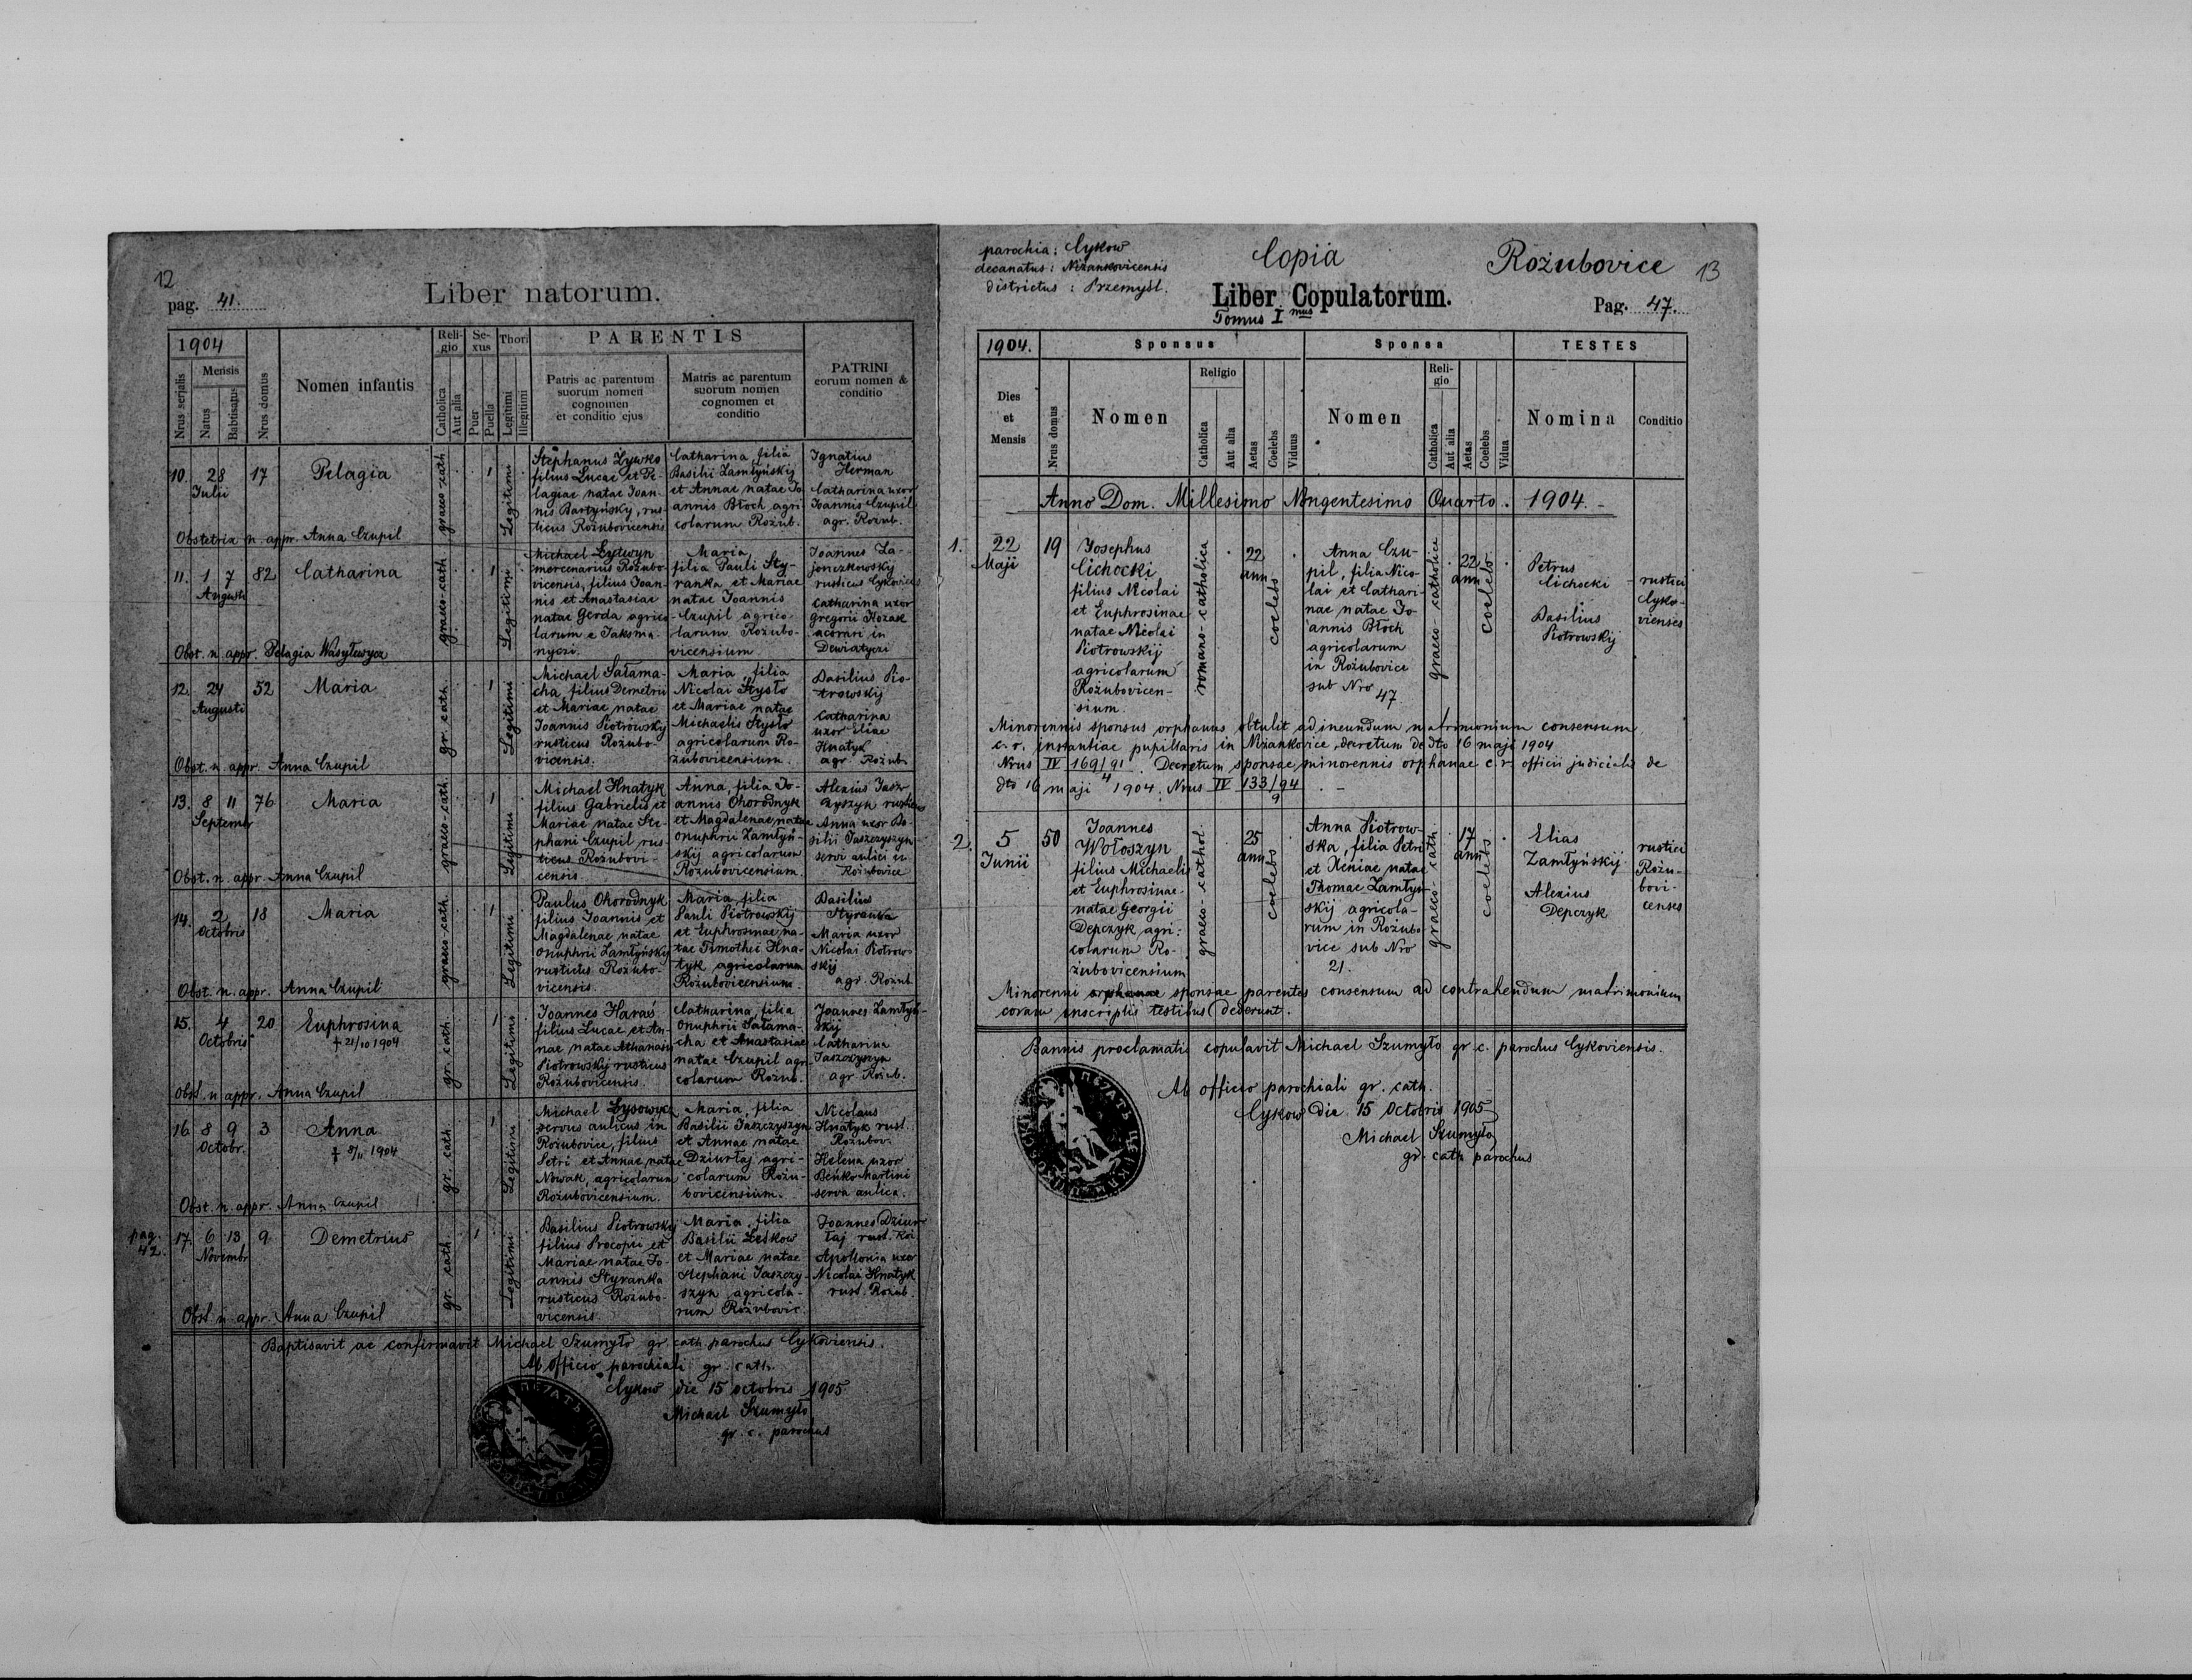 12
pag. 41.
Liber natorum.
1904
Nrus serialis
Mensis
Natus
Babtisatus
Nrus domus
Nomen infantis
Religio
Catholica
Aut alia
Sexus
Puer
Puella
Thori
Legitimi
Illegitimi
PARENTIS
Patris ac parentum
suorum nomen
cognomen
et conditio ejus
Matris ac parentum
suorum nomen
cognomen et
conditio
PATRINI
eorum nomen &
conditio
10. 28 17 Pelagia
Julii
graeco-cath
1
Legitimi
Stephanus Zywko
filius Lucae et Pe-
lagiae natae Joan-
nis Bartyńsky, rus-
ticus Rożubovicensis
Catharina, filia
Basilii Zamłyńskij
et Annae natae Jo
annis Błoch agri
colarum Rożub.
Ignatius
Herman
Catharina uxor
Joannis Czupil
agr. Rożub.
Obstetrix n. appr. Anna Czupil
11. 1 7 82 Catharina
Augusti
graeco-cath
1
Legitimi
Michael Lytwyn
mercenarius Rożubo-
vicensis, filius Joan-
nis et Anastasiae
natae Gerda agrico-
larum e Jaksma-
nyczi.
Maria,
filia Pauli Sty-
ranka et Mariae
natae Joannis
Czupil agrico-
larum Rożubo-
vicensium
Joannes Za-
jonczkowskij
rusticus Cykovien
Catharina uxor
Gregorii Kozak
acorari in
Dewiatyczi
Obst. n. appr. Pelagia Wasyłewycz
12. 24 52 Maria
Augusti
gr. cath.
1
Legitimi
Michael Sałama-
cha, filius Demetrii
et Mariae natae
Joannis Piotrowsky
rusticus Rożubo-
vicensis.
Maria, filia
Nicolai Stysło
et Mariae natae
Michaelis Stysło
agricolarum Ro-
żubovicensium.
Basilius Pio-
trowskij
Catharina
uxor Eliae
Hnatyk
agr. Rożub.
Obst. n. appr. Anna Czupil
13. 8 11 76 Maria
Septembr
graeco-cath.
1
Legitimi
Michael Hnatyk
filius Gabrielis et
Mariae natae Ste-
phani Czupil rus
ticus Rożubovi-
censis.
Anna, filia Jo-
annis Ohorodnyk
et Magdalenae natae
Onuphrii Zamłyń-
skij agricolarum
Rożubovicensium.
Alexius Jasz
czyszyn rusticus
Anna uxor Ba-
silii Jaszczyszyn
servi aulici in
Rożubovice
Obst. n. appr. Anna Czupil
14. 2 18 Maria
Octobris
graeco-cath.
1
Legitimi
Paulus Ohorodnyk
filius Joannis et
Magdalenae natae
Onuphrii Zamłyńsky
rusticus Rożubo-
vicensis.
Maria, filia
Pauli Piotrowskij
et Euphrosinae na-
tae Timothei Hna-
tyk agricolarum
Rożubovicensium.
Basilius
Styranka
Maria uxor
Nicolai Piotrow-
skij
agr. Rożub.
Obst. n. appr. Anna Czupil
15. 4 20 Euphrosina
Octobris
† 21/10 1904
gr. cath.
1
Legitimi
Joannes Haras
filius Lucae et An-
nae natae Athanasii
Piotrowskij rusticus
Rożubovicensis.
Catharina, filia
Onuphrii Sałama-
cha et Anastasiae
natae Czupil agri
colarum Rożub.
Joannes Zamłyń-
skij
Catharina
Jaszczyszyn
agr. Rożub.
Obst. n. appr. Anna Czupil
16. 8 9 3 Anna
Octobr.
† 8/11 1904
gr. cath
1
Legitimi
Michael Łysowycz
servus aulicus in
Rożubovice, filius
Petri et Annae natae
Nowak, agricolarum
Rożubovicensium.
Maria, filia
Basilii Jaszczyszyn
et Annae natae
Dziurtaj agri-
colarum Rożu-
bovicensium.
Nicolaus
Hnatyk rust.
Rożubov.
Helena uxor
Beńko Martini
serva aulica.
Obst. n. appr. Anna Czupil
pag. 42.
17. 6 13 9 Demetrius
Novembr
gr. cath.
1
Legitimi
Basilius Piotrowsky
filius Procopii et
Mariae natae Jo-
annis Styranka
rusticus Rożubo-
vicensis.
Maria, filia
Basilii Leśkow
et Mariae natae
Stephani Jaszczy-
szyn agricola-
rum Rożubovic.
Joannes Dziur
taj rust. Roż
Apollonia uxor
Nicolai Hnatyk
rust. Rożub.
Obst. n. appr. Anna Czupil
Baptisavit ac confirmavit Michael Szumyło gr. cath. parochus Cykoviensis.
Ab officio parochiali gr. cath.
Cykow die 15 octobris 1905
Michael Szumyło
gr. c. parochus
parochia: Cykow
decanatus: Niżankovicensis
districtus: Przemyśl.
Copia
Rożubovice
13
Liber Copulatorum.
Tomus I mus
Pag. 47.
1904.
Dies
et
Mensis
Nrus domus
Sponsus
Nomen
Religio
Catholica
Aut alia
Aetas
Coelebs
Viduus
Sponsa
Nomen
Religio
Catholica
Aut alia
Aetas
Coelebs
Vidua
TESTES
Nomina
Conditio
Anno Dom. Millesimo Nongentesimo Quarto. 1904. -
1. 22 19
Maji
Josephus
Cichocki
filius Nicolai
et Euphrosinae
natae Nicolai
Piotrowskij
agricolarum
Rożubovicen-
sium.
romano-catholica
22
ann
coelebs
Anna Czu-
pil, filia Nico-
lai et Cathari-
nae natae Jo-
annis Błoch
agricolarum
in Rożubovice
sub Nro 47.
graeco-catholica
22
ann
coelebs
Petrus
Cichocki
Basilius
Piotrowskij
rustici
Cyko-
vienses
Minorennis sponsus orphanus obtulit ad ineundum matrimonium consensum
c. r. instantiae pupillaris in Niżankovice, decretum de dto 16 maji 1904
Nrus IV 169/91 4. Decretum sponsae minorennis orphanae c. r. officii judicialis de
dto 16 maji 1904. Nrus IV 133/94 9. -
2. 5 50
Junii
Joannes
Wołoszyn
filius Michaelis
et Euphrosinae
natae Georgii
Depczyk agri-
colarum Ro-
żubovicensium
graeco-cathol.
25
ann
coelebs
Anna Piotrow-
ska, filia Petri
et Xeniae natae
Thomae Zamłyn-
skij agricola-
rum in Rożubo
vice sub Nro
21.
graeco-cath
17
ann
coelebs
Elias
Zamłyńskij
Alexius
Depczyk
rustici
Rożu-
bovi-
censes
Minorenni orphanae sponsae parentes consensum ad contrahendum matrimonium
coram inscriptis testibus dederunt.
Bannis proclamatis copulavit Michael Szumyło gr. c. parochus Cykoviensis.
Ab officio parochiali gr. cath.
Cykow die 15 Octobris 1905
Michael Szumyło
gr. cath. parochus